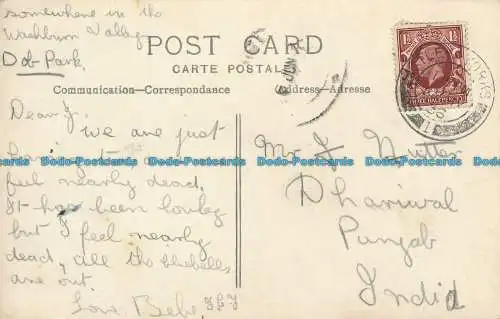 somewhere in the
Washburn Valley
Dob Park.
POST CARD
CARTE POSTALE
Communication—Correspondance
Address—Adresse
THREE HALF PENCE
Dear J.
we are just
feel nearly dead.
It has been lovely
but I feel nearly
dead, all the bluebells
are out.
Love Bebe
Mr J. Nutter
Dhariwal
Punjab
India
Dodo-Postcards Dodo-Postcards Dodo-Postcards Dodo-Postcards
Dodo-Postcards Dodo-Postcards Dodo-Postcards Dodo-Postcards